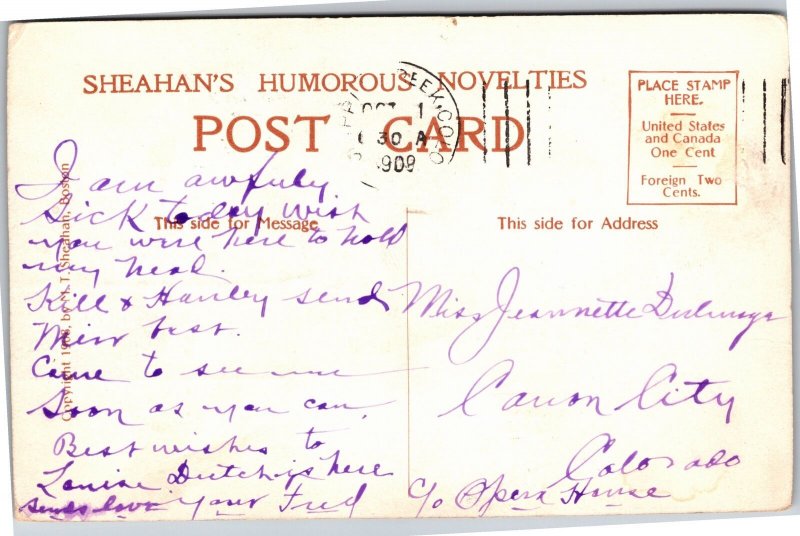 SHEAHAN'S HUMOROUS NOVELTIES
POST CARD
CREEK, COLO
OCT 1
30 A
1909
PLACE STAMP
HERE.
United States
and Canada
One Cent
Foreign Two
Cents.
This side for Message
This side for Address
Copyright 1908, by M. T. Sheahan, Boston
I am awfuly
Sick today wish
you were here to hold
my head.
Kill & Hanley send
their best.
Come to see me
Soon as you can.
Best wishes to
Louise Dutch is here
sends love your Fred
Miss Jeannette
Canon City
Colorado
c/o Opera House